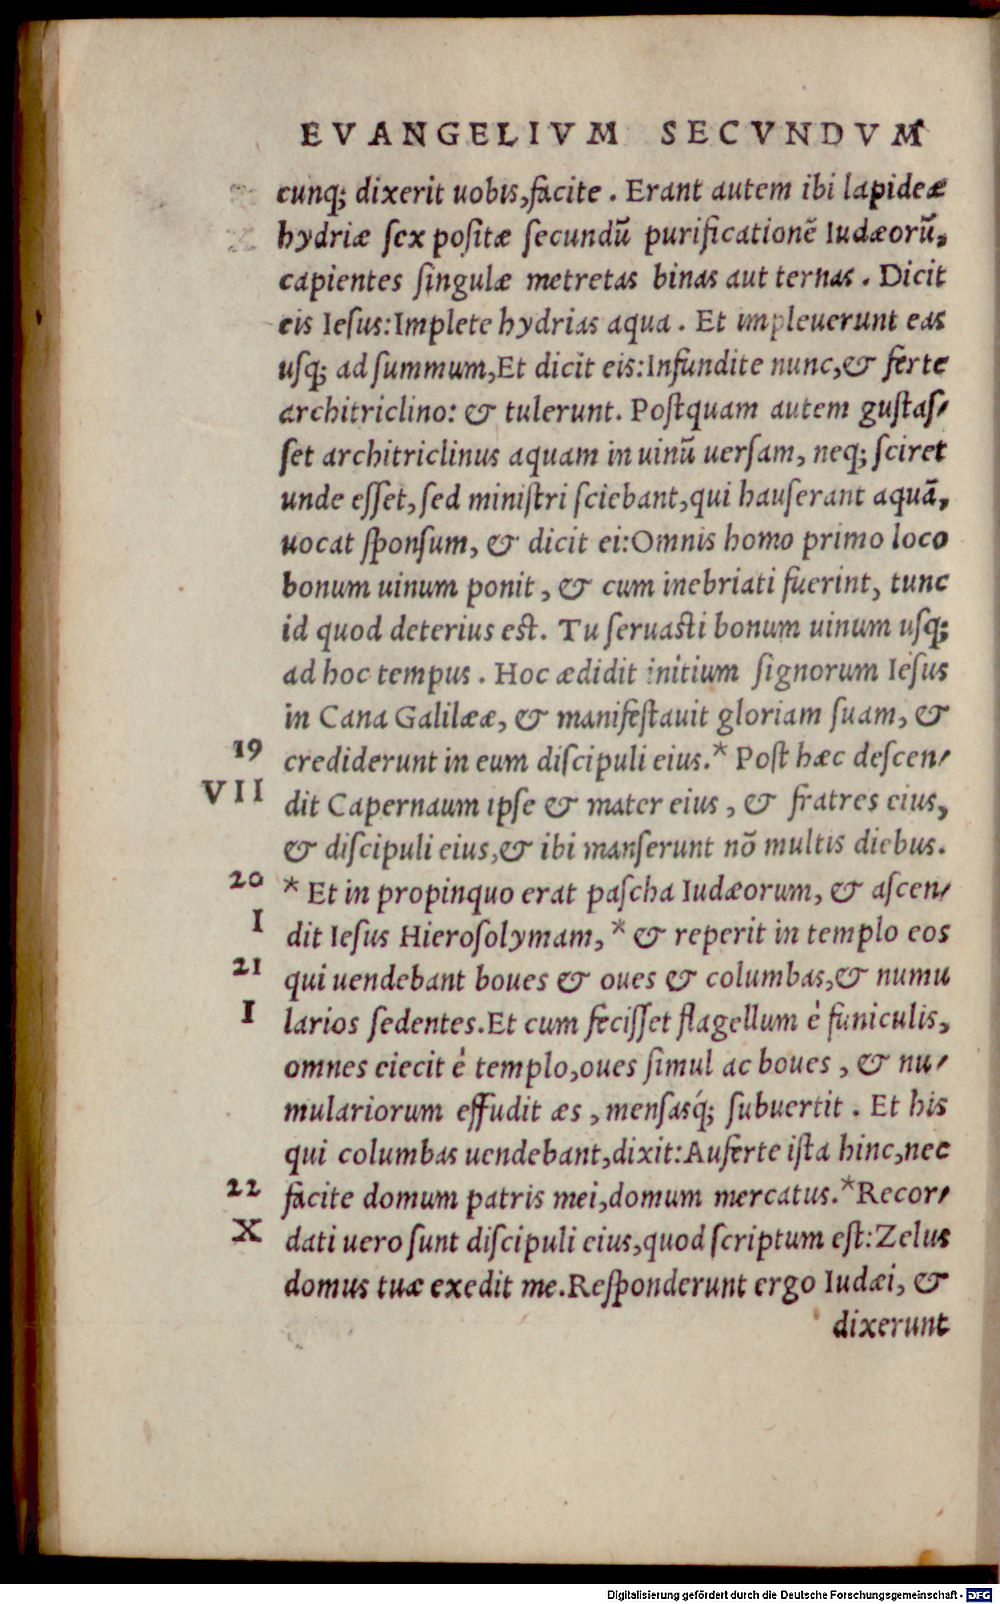 EVANGELIVM SECVNDVM
cunq; dixerit uobis, facite. Erant autem ibi lapideæ
hydriæ sex positæ secundũ purificationẽ Iudæorũ,
capientes singulæ metretas binas aut ternas. Dicit
eis Iesus: Implete hydrias aqua. Et impleuerunt eas
usq; ad summum, Et dicit eis: Infundite nunc, & ferte
architriclino: & tulerunt. Postquam autem gustas⸗
set architriclinus aquam in uinũ uersam, neq; sciret
unde esset, sed ministri sciebant, qui hauserant aquã,
uocat sponsum, & dicit ei: Omnis homo primo loco
bonum uinum ponit, & cum inebriati fuerint, tunc
id quod deterius est. Tu seruasti bonum uinum usq;
ad hoc tempus. Hoc ædidit initium signorum Iesus
in Cana Galilææ, & manifestauit gloriam suam, &
19 crediderunt in eum discipuli eius.* Post hæc descen⸗
VII dit Capernaum ipse & mater eius, & fratres eius,
& discipuli eius, & ibi manserunt nõ multis diebus.
20 * Et in propinquo erat pascha Iudæorum, & ascen⸗
I dit Iesus Hierosolymam, * & reperit in templo eos
21 qui uendebant boues & oues & columbas, & numu
I larios sedentes. Et cum fecisset flagellum è funiculis,
omnes eiecit è templo, oues simul ac boues, & nu⸗
mulariorum effudit æs, mensasq́; subuertit. Et his
qui columbas uendebant, dixit: Auferte ista hinc, nec
22 facite domum patris mei, domum mercatus.* Recor⸗
X dati uero sunt discipuli eius, quod scriptum est: Zelus
domus tuæ exedit me. Responderunt ergo Iudæi, &
dixerunt
Digitalisierung gefördert durch die Deutsche Forschungsgemeinschaft - DFG